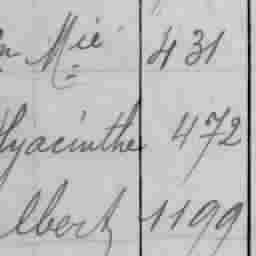 Mie 431
Hyacinthe 472
lbert 1199